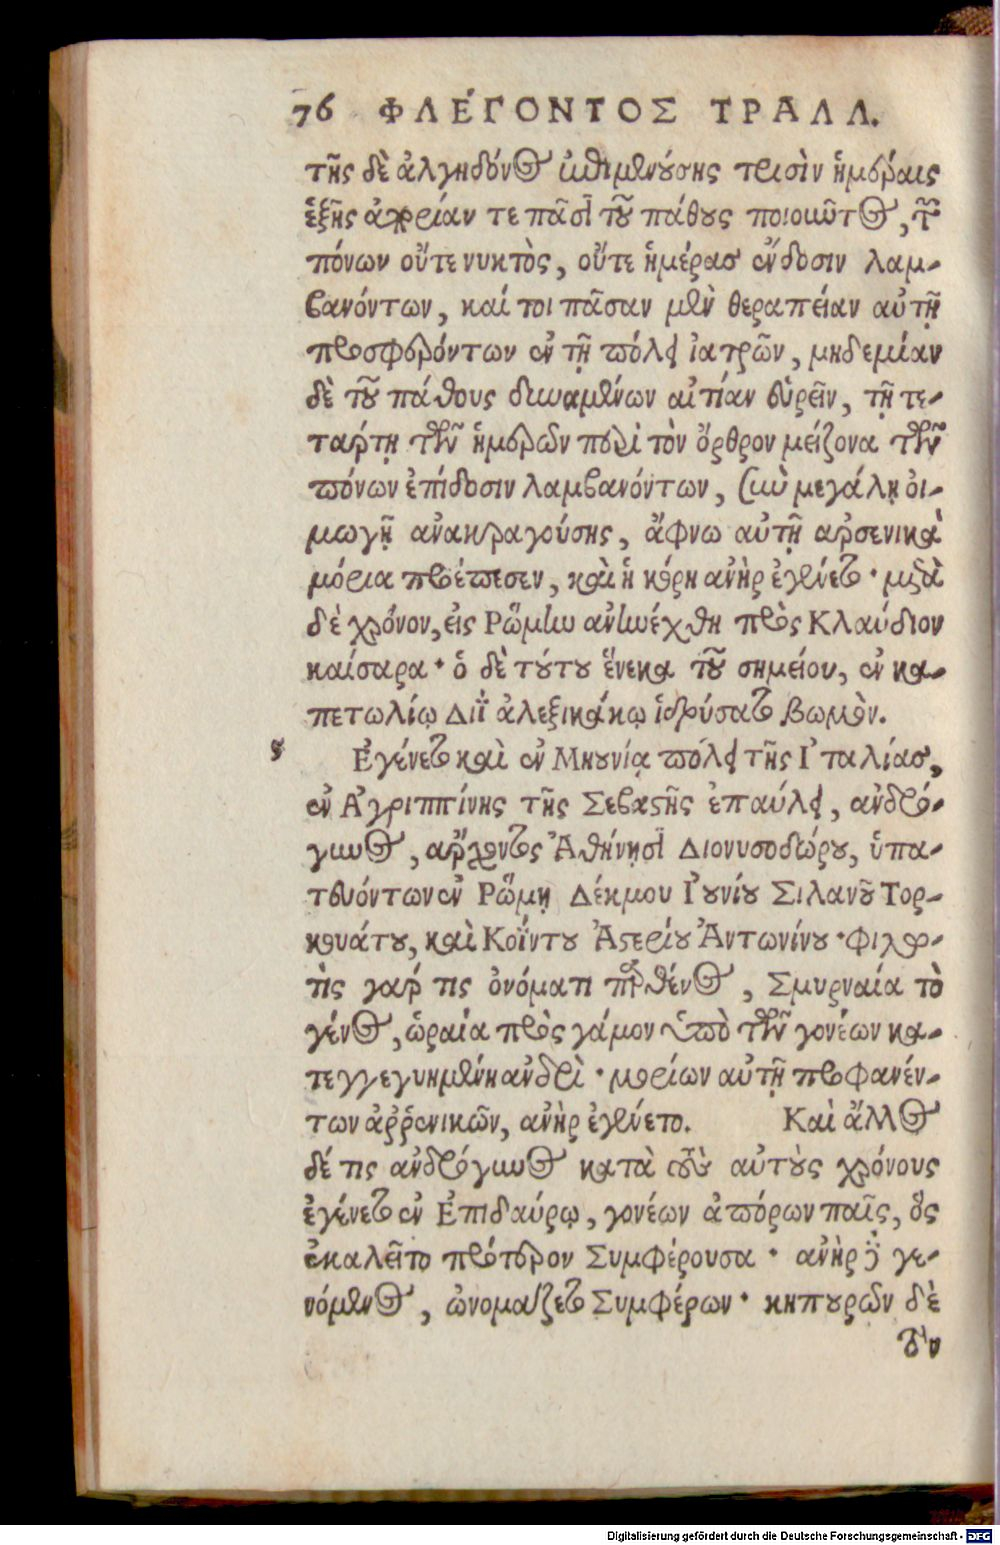 76 ΦΛΕΓΟΝΤΟΣ ΤΡΑΛΛ.
τῆς δὲ ἀλγηδόνος ἐπιμενούσης τρισὶν ἡμέραις
ἑξῆς ἀπορίαν τε πᾶσι τοῦ πάθους ποιοῦντος, τῶν
πόνων οὔτε νυκτὸς, οὔτε ἡμέρας ἔνδοσιν λαμ-
βανόντων, καί τοι πᾶσαν μὲν θεραπείαν αὐτῇ
προσφερόντων ἐν τῇ πόλει ἰατρῶν, μηδεμίαν
δὲ τοῦ πάθους δυναμένων αἰτίαν εὑρεῖν, τῇ τε-
τάρτῃ τῶν ἡμερῶν περὶ τὸν ὄρθρον μείζονα τῶν
πόνων ἐπίδοσιν λαμβανόντων, σὺν μεγάλῃ οἰ-
μωγῇ ἀνακραγούσης, ἄφνω αὐτῇ ἀρσενικὰ
μόρια προέπεσεν, καὶ ἡ κόρη ἀνὴρ ἐγένετο· μετὰ
δὲ χρόνον, εἰς Ῥώμην ἀνηνέχθη πρὸς Κλαύδιον
καίσαρα· ὁ δὲ τούτου ἕνεκα τοῦ σημείου, ἐν κα-
πετωλίῳ Διῒ ἀλεξικάκῳ ἱδρύσατο βωμὸν.
ς Ἐγένετο καὶ ἐν Μηουνίᾳ πόλει τῆς Ἰταλίας,
ἐν Ἀγριππίνης τῆς Σεβαστῆς ἐπαύλει, ἀνδρό-
γυνος, ἄρχοντος Ἀθήνῃσι Διονυσοδώρου, ὑπα-
τευόντων ἐν Ῥώμῃ Δέκμου Ἰουνίου Σιλανοῦ Τορ-
κουάτου, καὶ Κοΐντου Ἀστερίου Ἀντωνίνου· Φιλω-
τὶς γάρ τις ὀνόματι παρθένος, Σμυρναία τὸ
γένος, ὡραία πρὸς γάμον ὑπὸ τῶν γονέων κα-
τεγγεγυημένη ἀνδρὶ· μορίων αὐτῇ προφανέν-
των ἀῤῥενικῶν, ἀνὴρ ἐγένετο. Καὶ ἄλλος
δέ τις ἀνδρόγυνος κατὰ τοὺς αὐτοὺς χρόνους
ἐγένετο ἐν Ἐπιδαύρῳ, γονέων ἀπόρων παῖς, ὃς
ἐκαλεῖτο πρότερον Συμφέρουσα· ἀνὴρ δὲ γε-
νόμενος, ὠνομάζετο Συμφέρων· κηπουρῶν δὲ
τὸν
Digitalisierung gefördert durch die Deutsche Forschungsgemeinschaft - DFG